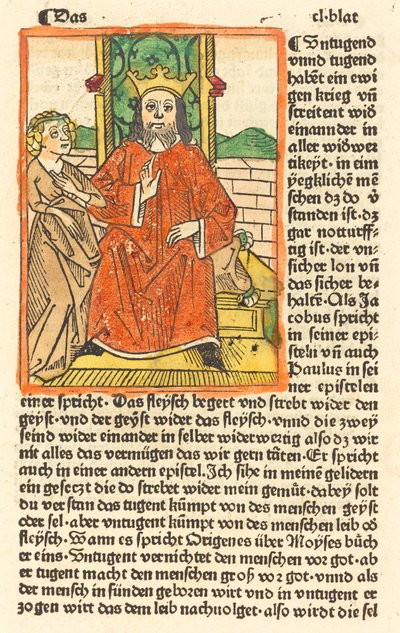 ¶ Das cl·blat
¶ Untugend
vnnd tugend
habēt ein ewi
gen krieg vn̄
streitent wid
einannder in
aller widwer
tikeyt· in eim
yegklichē mē
schen dz do v̓
standen ist· dz
gar notturff⸗
tig ist· der vn⸗
sicher lon vn̄
das sicher be⸗
haltē· Als Ja
cobus spricht
in seiner epi⸗
steln vn̄ auch
Paulus in sei
ner epistelen
einer spricht· Das fleysch begert vnd strebt wider den
geyst· vnd der geyst wider das fleysch· vnnd die zwey
seind wider einander in selber widerwertig also dz wir
nit alles das vermügen das wir gern täten· Er spricht
auch in einer andern epistel· Ich sihe in meinē gelidern
ein gesetzt die do strebet wider mein gemüt· dabey solt
du verstan das tugent kümpt von des menschen geyst
oder sel· aber vntugent kümpt von des menschen leib oð
fleysch· Wann es spricht Origenes über Moyses büch
er eins· Untugent vernichtet den menschen vor got· ab
er tugent macht den menschen groß vor got· vnnd als
der mensch in sünden geboren wirt vnd in vntugent er
zogen wirt das dem leib nachuolget· also wirdt die sel